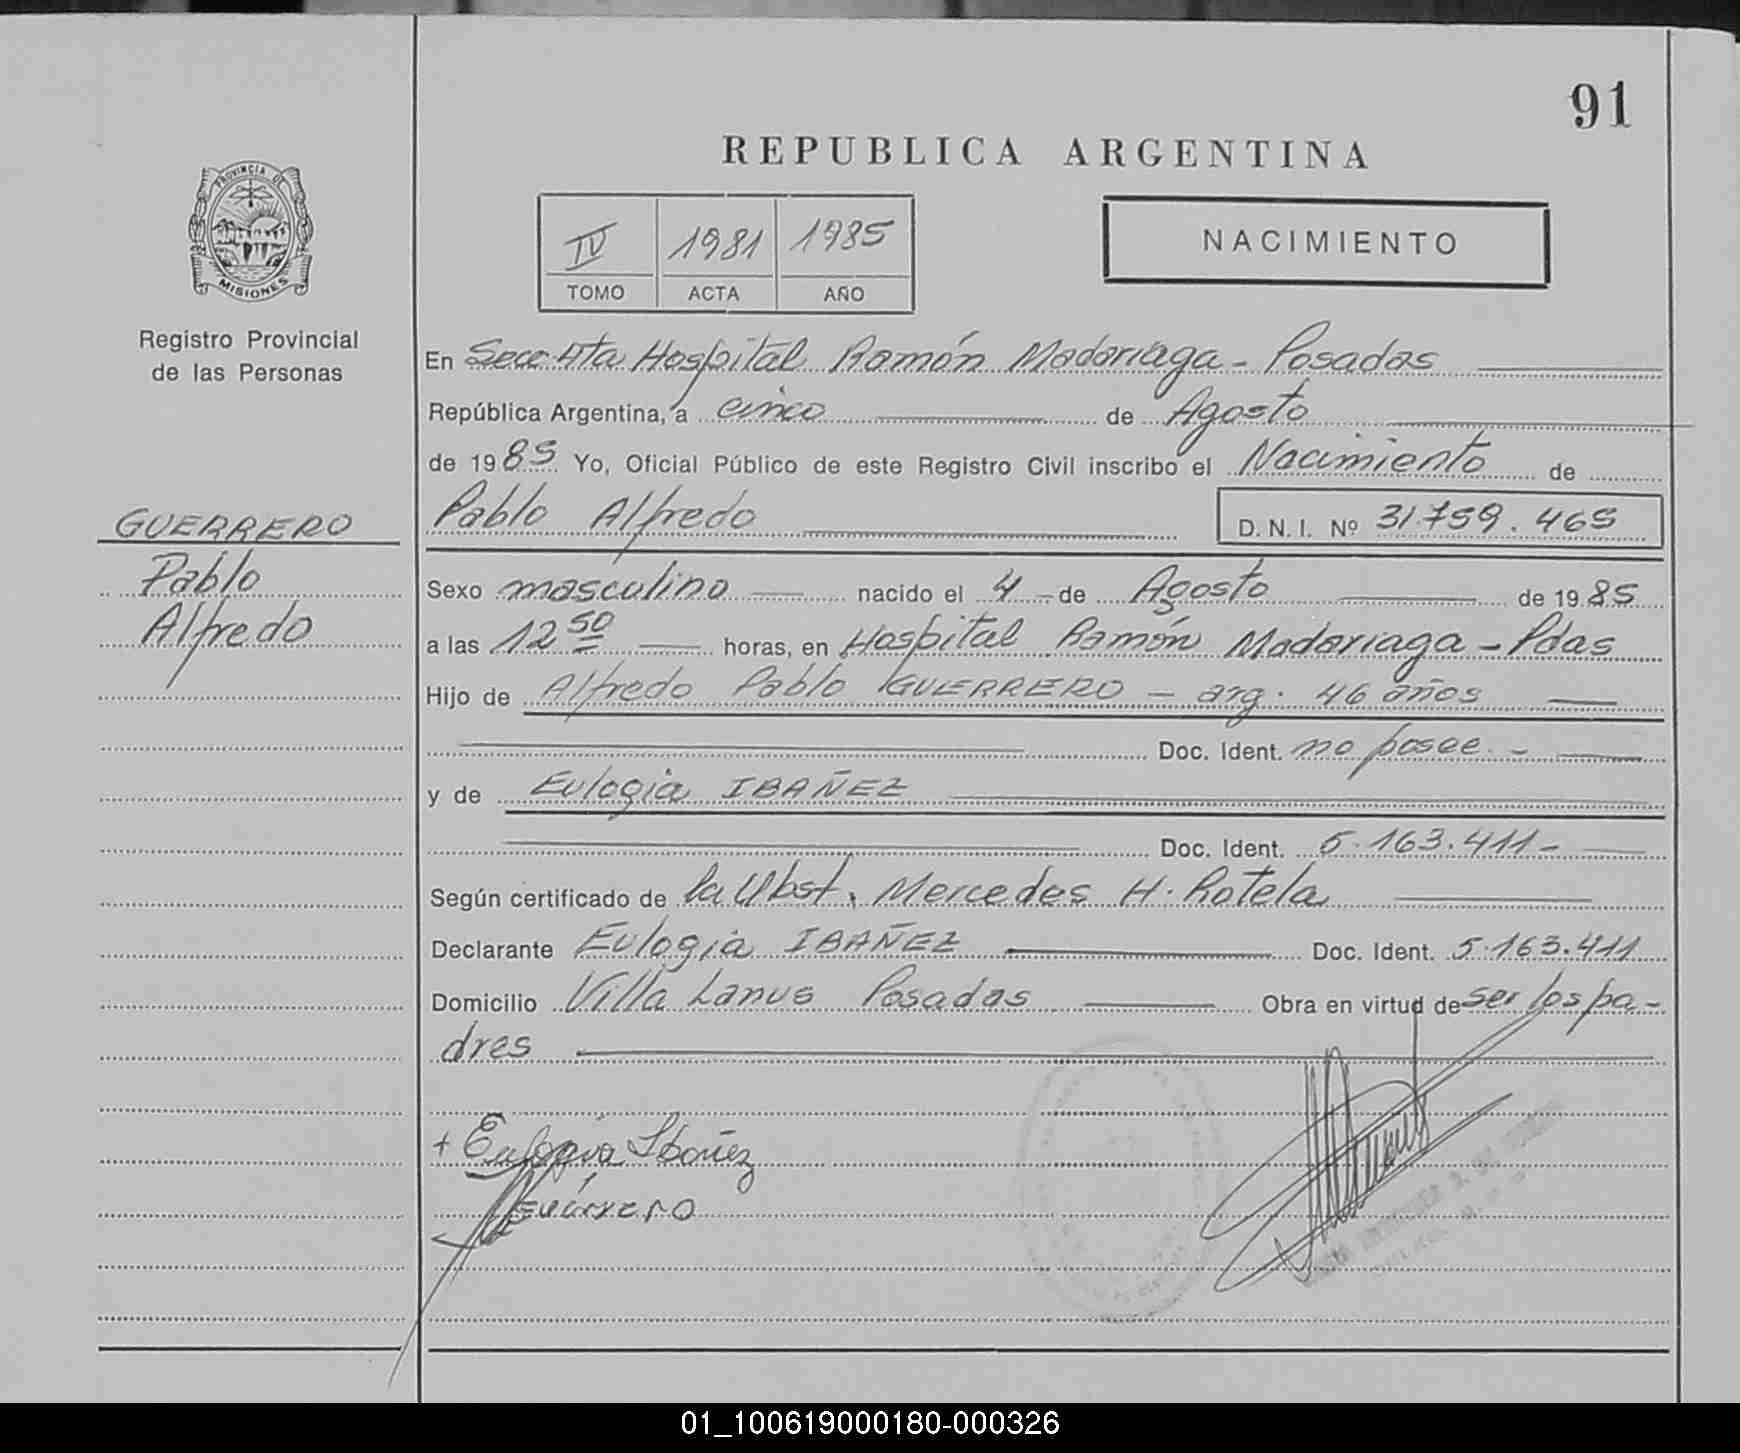 91
REPUBLICA ARGENTINA
PROVINCIA DE
MISIONES
IV 1981 1985
TOMO ACTA AÑO
NACIMIENTO
Registro Provincial
de las Personas
En Secc 4ta Hospital Ramón Madariaga - Posadas
República Argentina, a cinco de Agosto
de 1985 Yo, Oficial Público de este Registro Civil inscribo el Nacimiento de
GUERRERO
Pablo
Alfredo
Pablo Alfredo D.N.I. Nº 31.759.465
Sexo masculino nacido el 4 de Agosto de 1985
a las 12 50 horas, en Hospital Ramón Madariaga - Pdas
Hijo de Alfredo Pablo GUERRERO - arg. 46 años
Doc. Ident. no posee. -
y de Eulogia IBAÑEZ
Doc. Ident. 5.163.411-
Según certificado de la Obst. Mercedes H. Rotela
Declarante Eulogia IBAÑEZ Doc. Ident. 5.163.411
Domicilio Villa Lanus Posadas Obra en virtud de ser los pa-
dres
+ Eulogia Ibañez
Guerrero
01_100619000180-000326